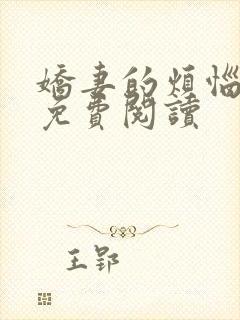 嬌妻的煩惱
免費閱讀
王郢